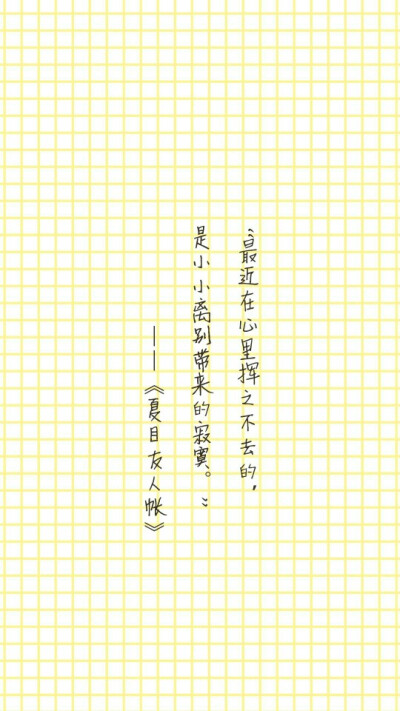 “最近在心里挥之不去的,
是小小离别带来的寂寞。”
——《夏目友人帐》